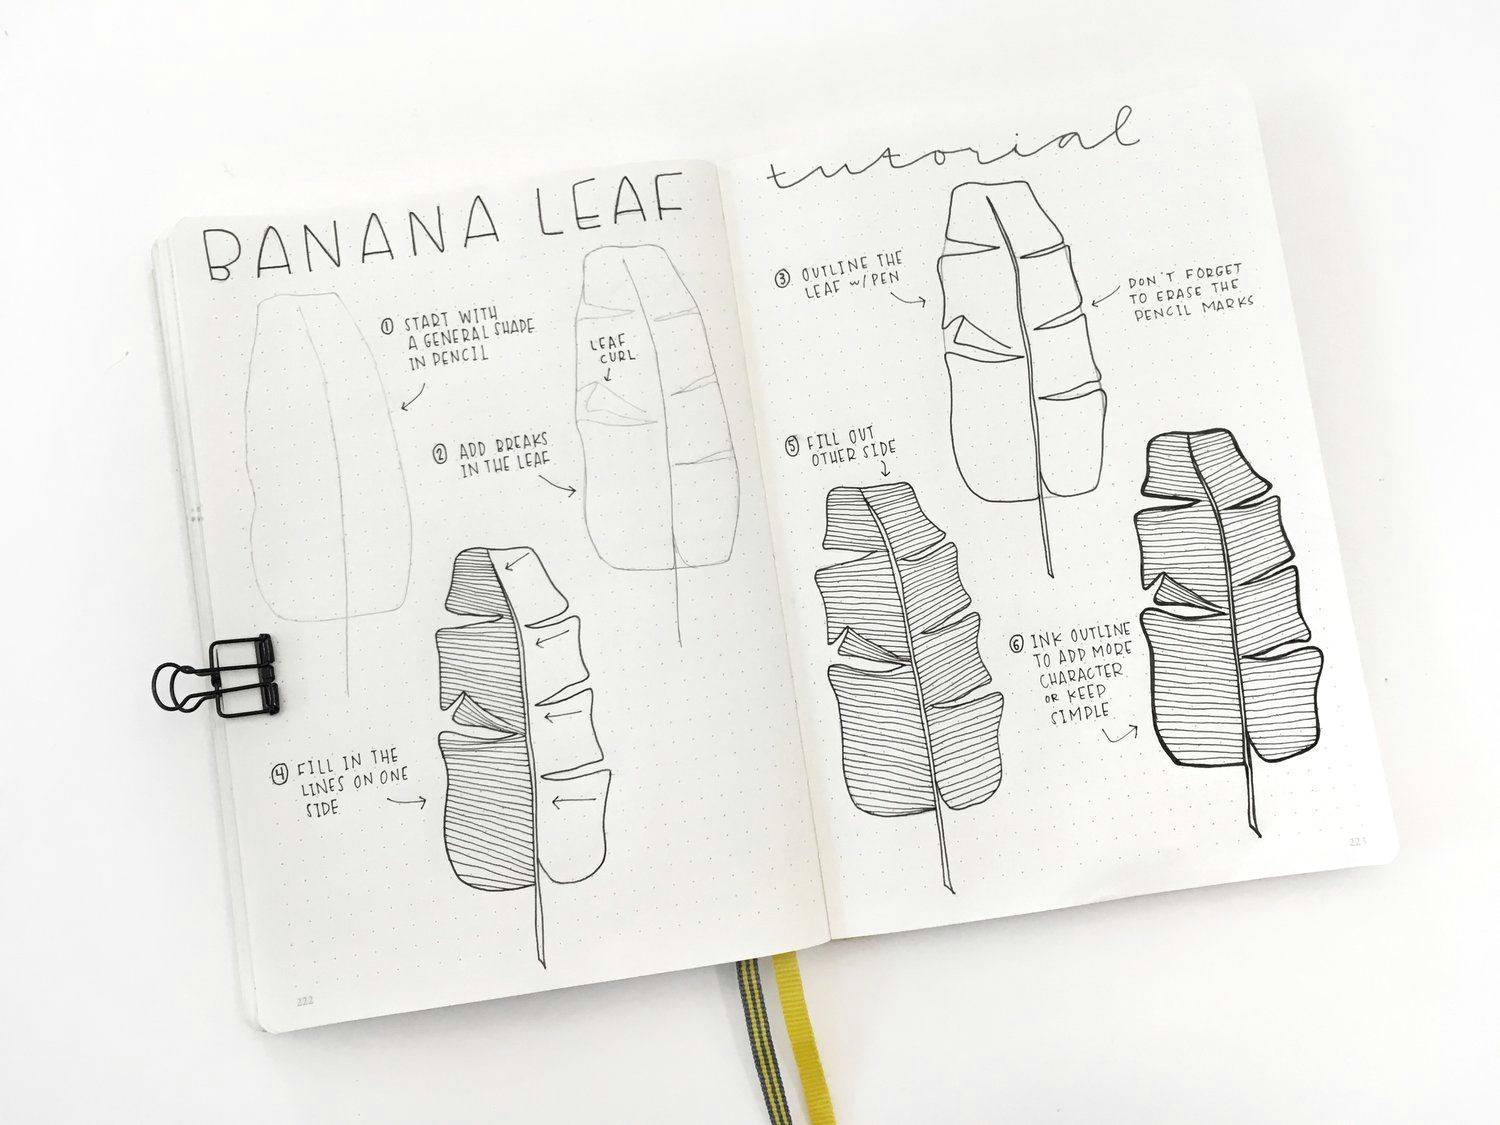 BANANA LEAF
① START WITH
A GENERAL SHAPE
IN PENCIL
LEAF
CURL
② ADD BREAKS
IN THE LEAF
④ FILL IN THE
LINES ON ONE
SIDE
222
tutorial
③ OUTLINE THE
LEAF w/ PEN
DON'T FORGET
TO ERASE THE
PENCIL MARKS
⑤ FILL OUT
OTHER SIDE
⑥ INK OUTLINE
TO ADD MORE
CHARACTER
OR KEEP
SIMPLE
223